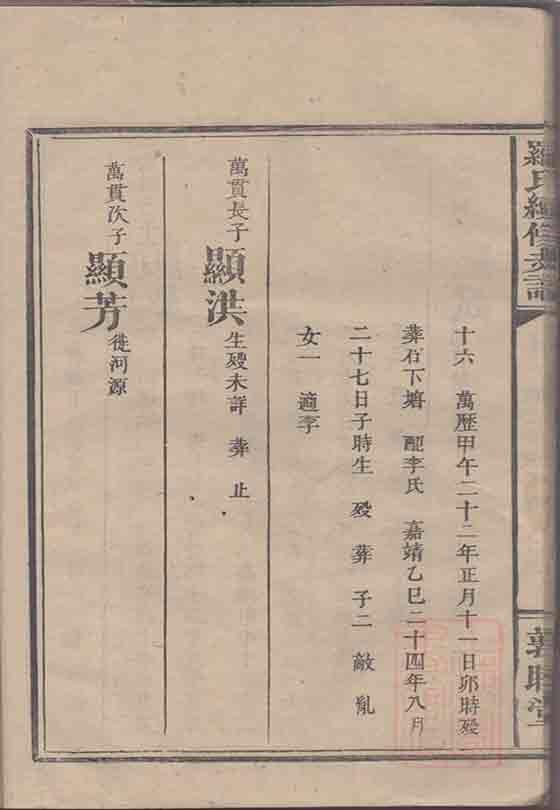 羅氏續修支譜
敦睦堂
十六 萬歷甲午二十二年正月十一日卯時歿
葬石下塘 配李氏 嘉靖乙巳二十四年八月
二十七日子時生 歿 葬 子二 敵亂
女一 適李
萬貫長子 顯洪 生歿未詳 葬 止
萬貫次子 顯芳 徙河源